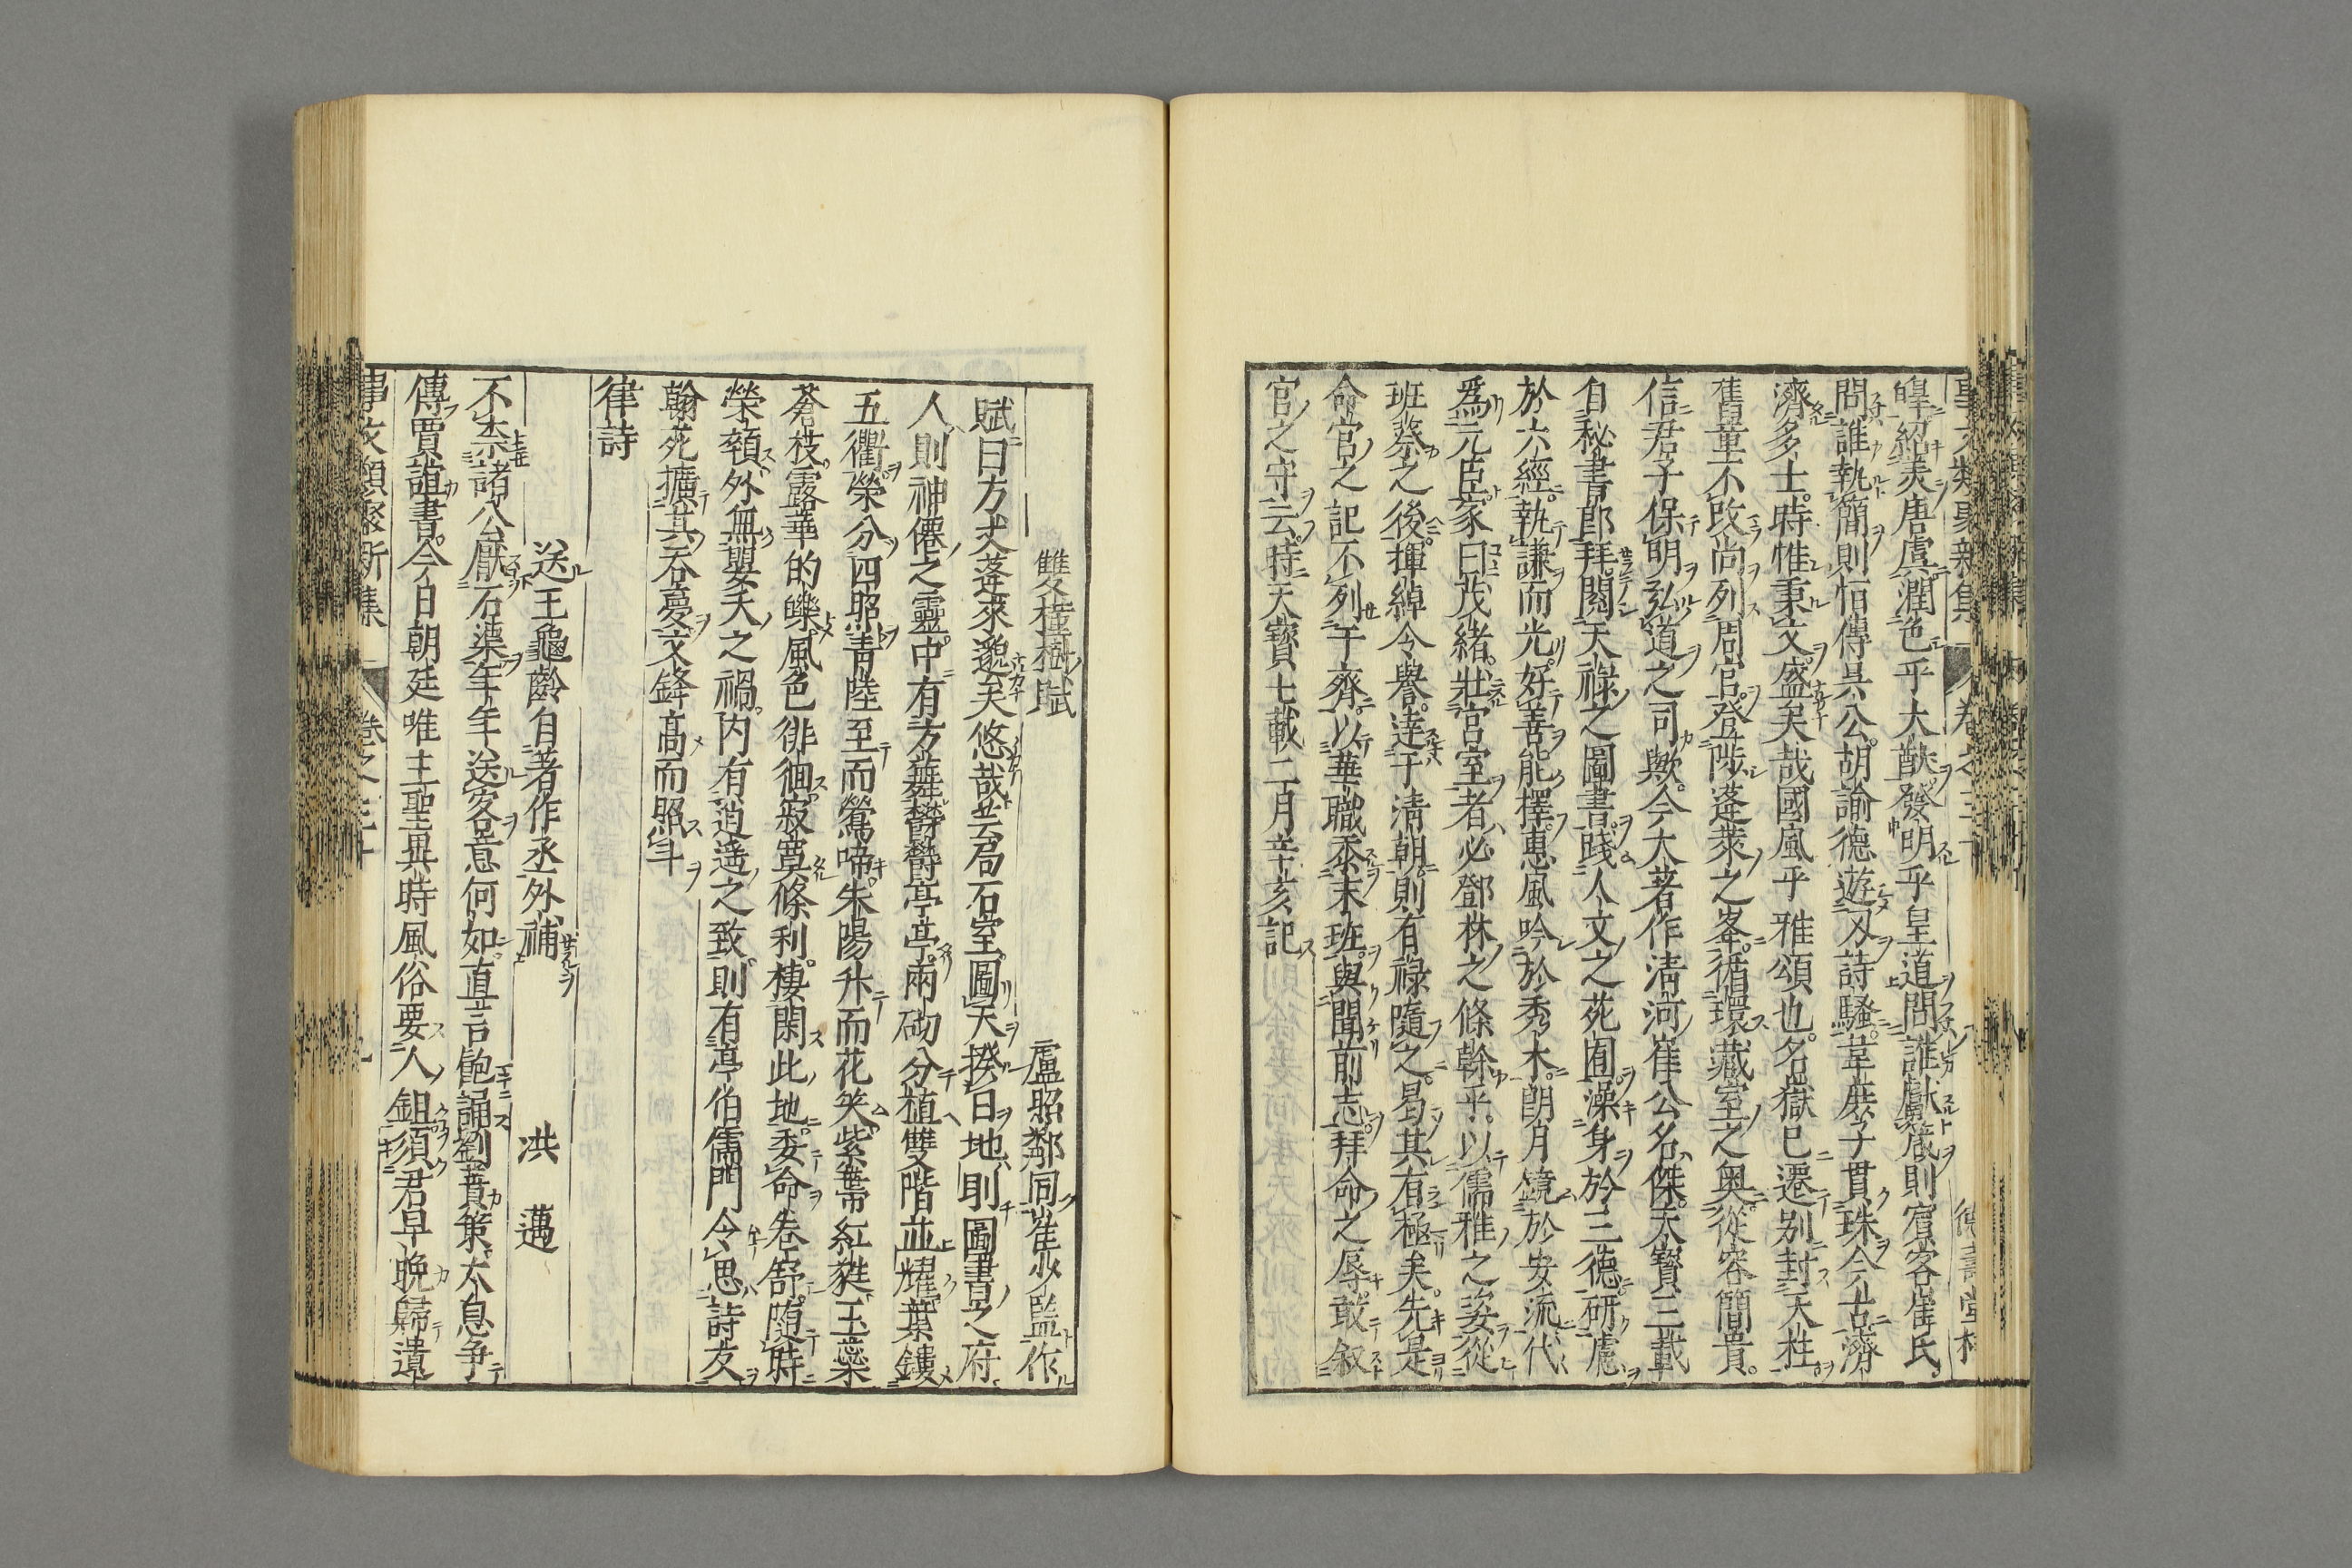 皐紹美唐虞潤色乎大猷發明乎皇道問誰獻箴則賓客崔氏
問誰執簡則恒傳吳公胡諭德遊刄詩騷韋庶子貫珠今古濟
濟多士時惟秉文盛矣哉國風乎雅頌也名嶽已遷別封天柱
舊章不改尚列周官登陟蓬萊之峯循環藏室之奥從容簡貴
信君子保明弘道之司歟今大著作清河崔公名傑天寶三載
自秘書郎拜閱天祿之圖書踐人文之苑囿澡身於三德研慮
於六經執謙而光好善能擇惠風吟於秀木朗月鏡於安流代
爲元臣家曰茂緒壯宮室者必鄧林之條幹乎以儒雅之姿從
班蔡之後揮綽令譽達于淸朝則有祿隨之曷其有極矣先是
命官之記不列于齊以華職忝末班與聞前志拜命之辱敢叙
官之守云持天寶七載二月辛亥記
雙橫樹賦
盧照鄰同崔少監作
賦曰方丈蓬來邈矣悠哉芸局石室圖天揆日地則圖書之府
人則神僊之靈中有芳蕤欝欝亭亭兩砌分植雙階並耀葉鏤
五衢榮分四照靑陸至而鶯啼朱陽升而花笑紫蔕紅蕤玉蘂
蒼枝露華的皪風色徘徊寂寞條利棲閑此地委命卷舒随時
榮頟外無嬰夭之禍内有逍遙之致則有亭伯儒門令思詩友
翰苑擴其吞夣文鋒髙而照斗
律詩
送王龜齡自著作丞外補
洪　邁
不柰諸公厭石渠年年送客意何如直言飽誦劉蕡策太息争
傳賈誼書今日朝廷唯主聖異時風俗要人鉏須君早晚歸遺